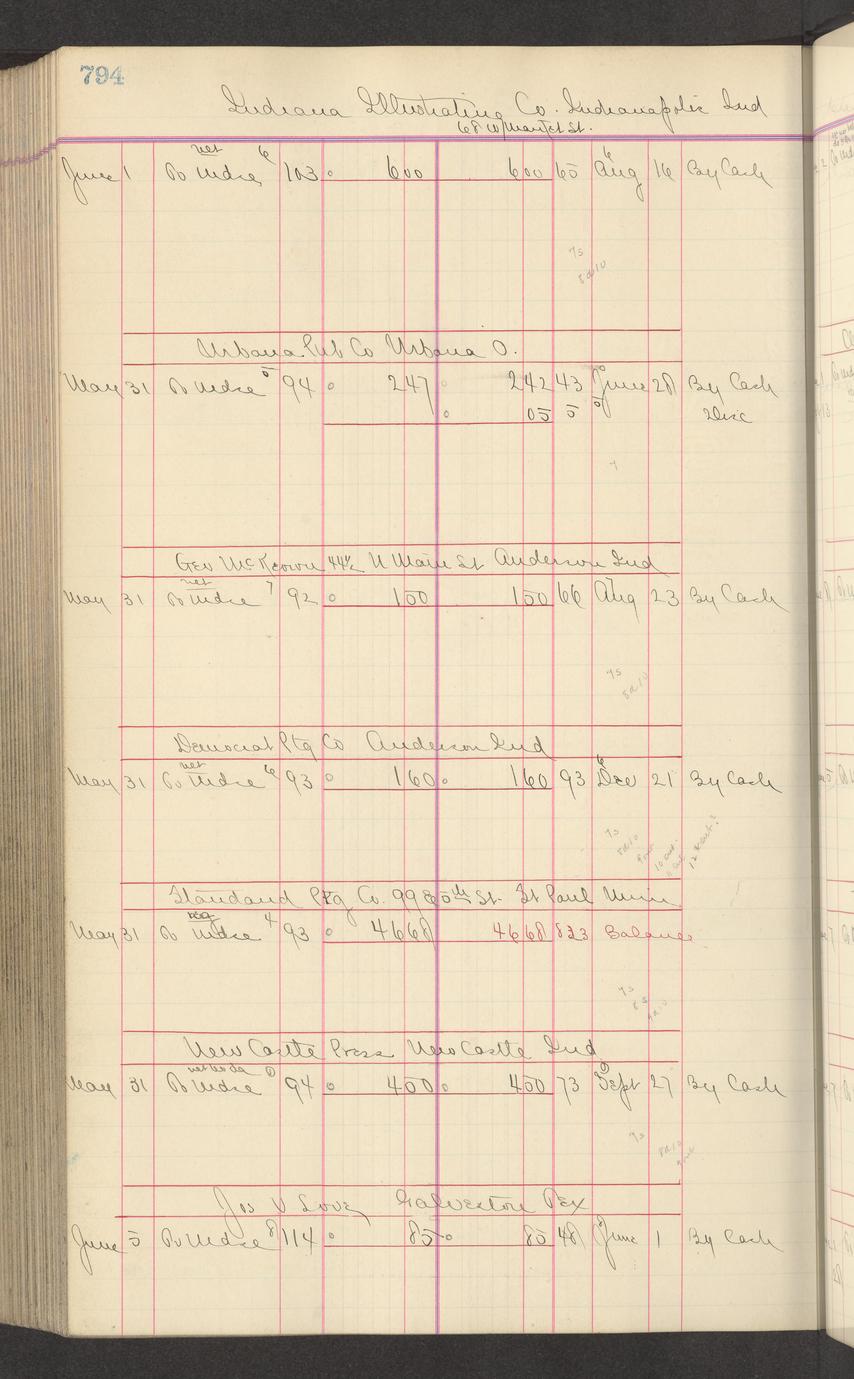 794
Indiana Illustrating Co. Indianapolis Ind
68 W Market St.
net 6 6
June 1 To Mdse 103 600 600 65 Aug 16 By Cash
7s
8d10
Urbana Pub Co Urbana O.
May 31 To Mdse 5 94 247 242 43 June 28 By Cash
05 5 5 2Disc
7
Geo McKeown 44½ N Main St Anderson Ind
net 7 7
May 31 To Mdse 92 150 150 66 Aug 23 By Cash
7s
8d10
Democrat Ptg Co Anderson Ind
net 6 6
May 31 To Mdse 93 160 160 93 Dec 21 By Cash
7s
8d10
Standard Ptg Co. 99 E 5th St. St Paul Minn
4
May 31 To Mdse 93 4668 4668 823 Balance
7s
8s
9d10
New Castle Press New Castle Ind
net 60 da
May 31 To Mdse 94 450 450 73 Sept 27 By Cash
7s
8d10
Jos V Love, Galveston Tex
June 5 To Mdse 8 114 85 85 48 June 1 By Cash